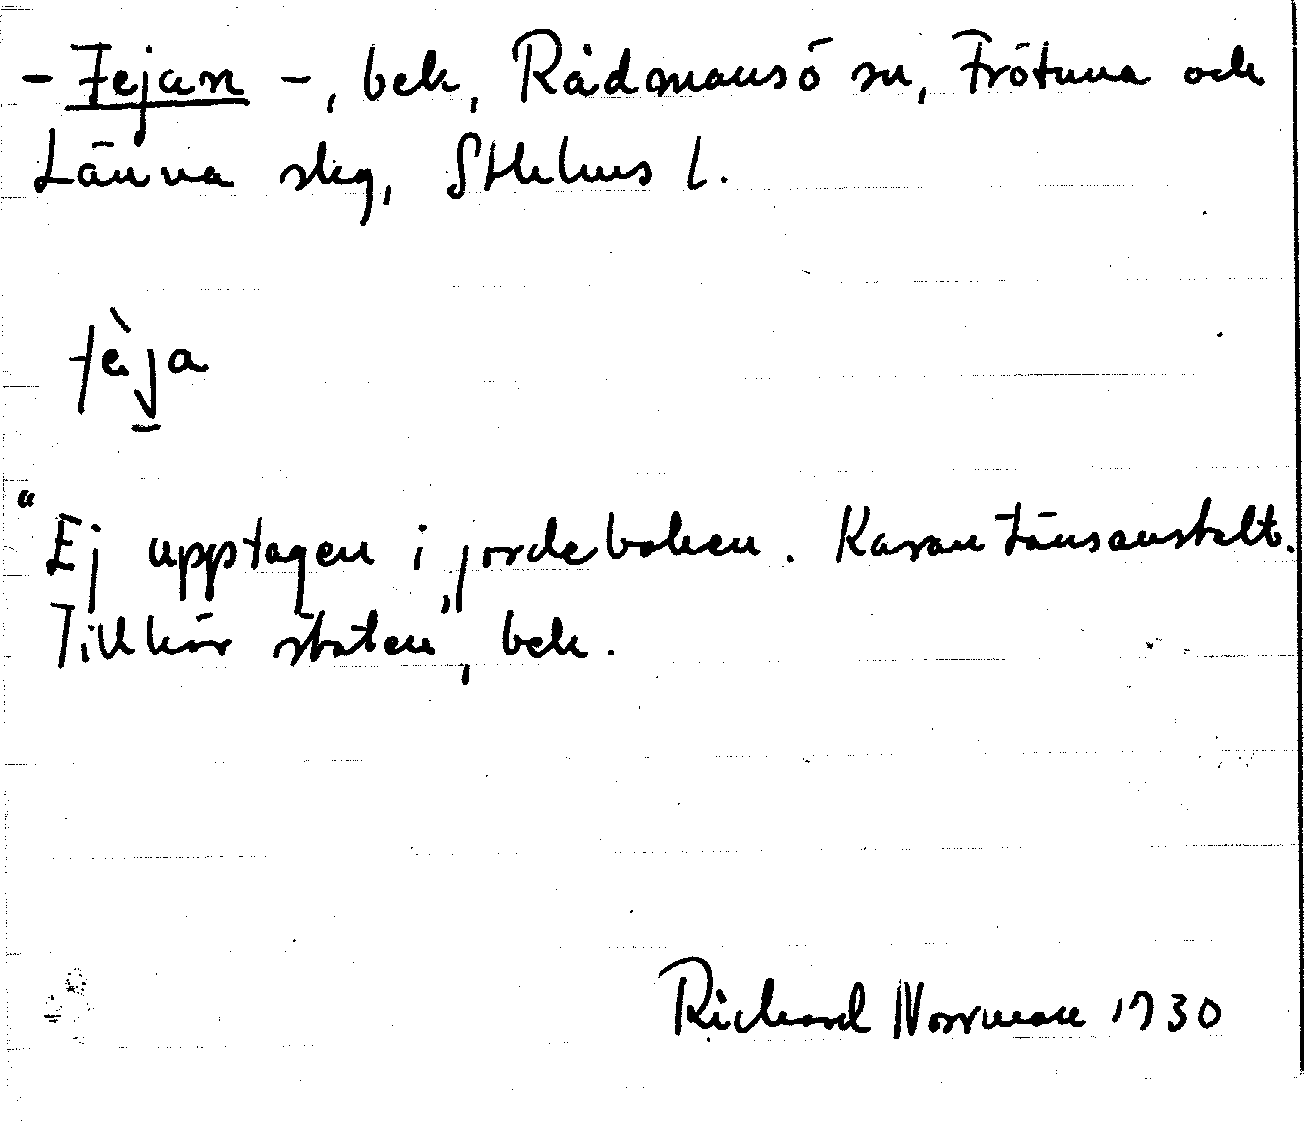 - Fejan -, bek, Rådmansö sn, Frötuna och
Länna skg, Sthlms l.
fèja
"Ej upptagen i jordeboken. Karantänsanstalt.
Tillhör staten", bek.
Richard Norrman 1930